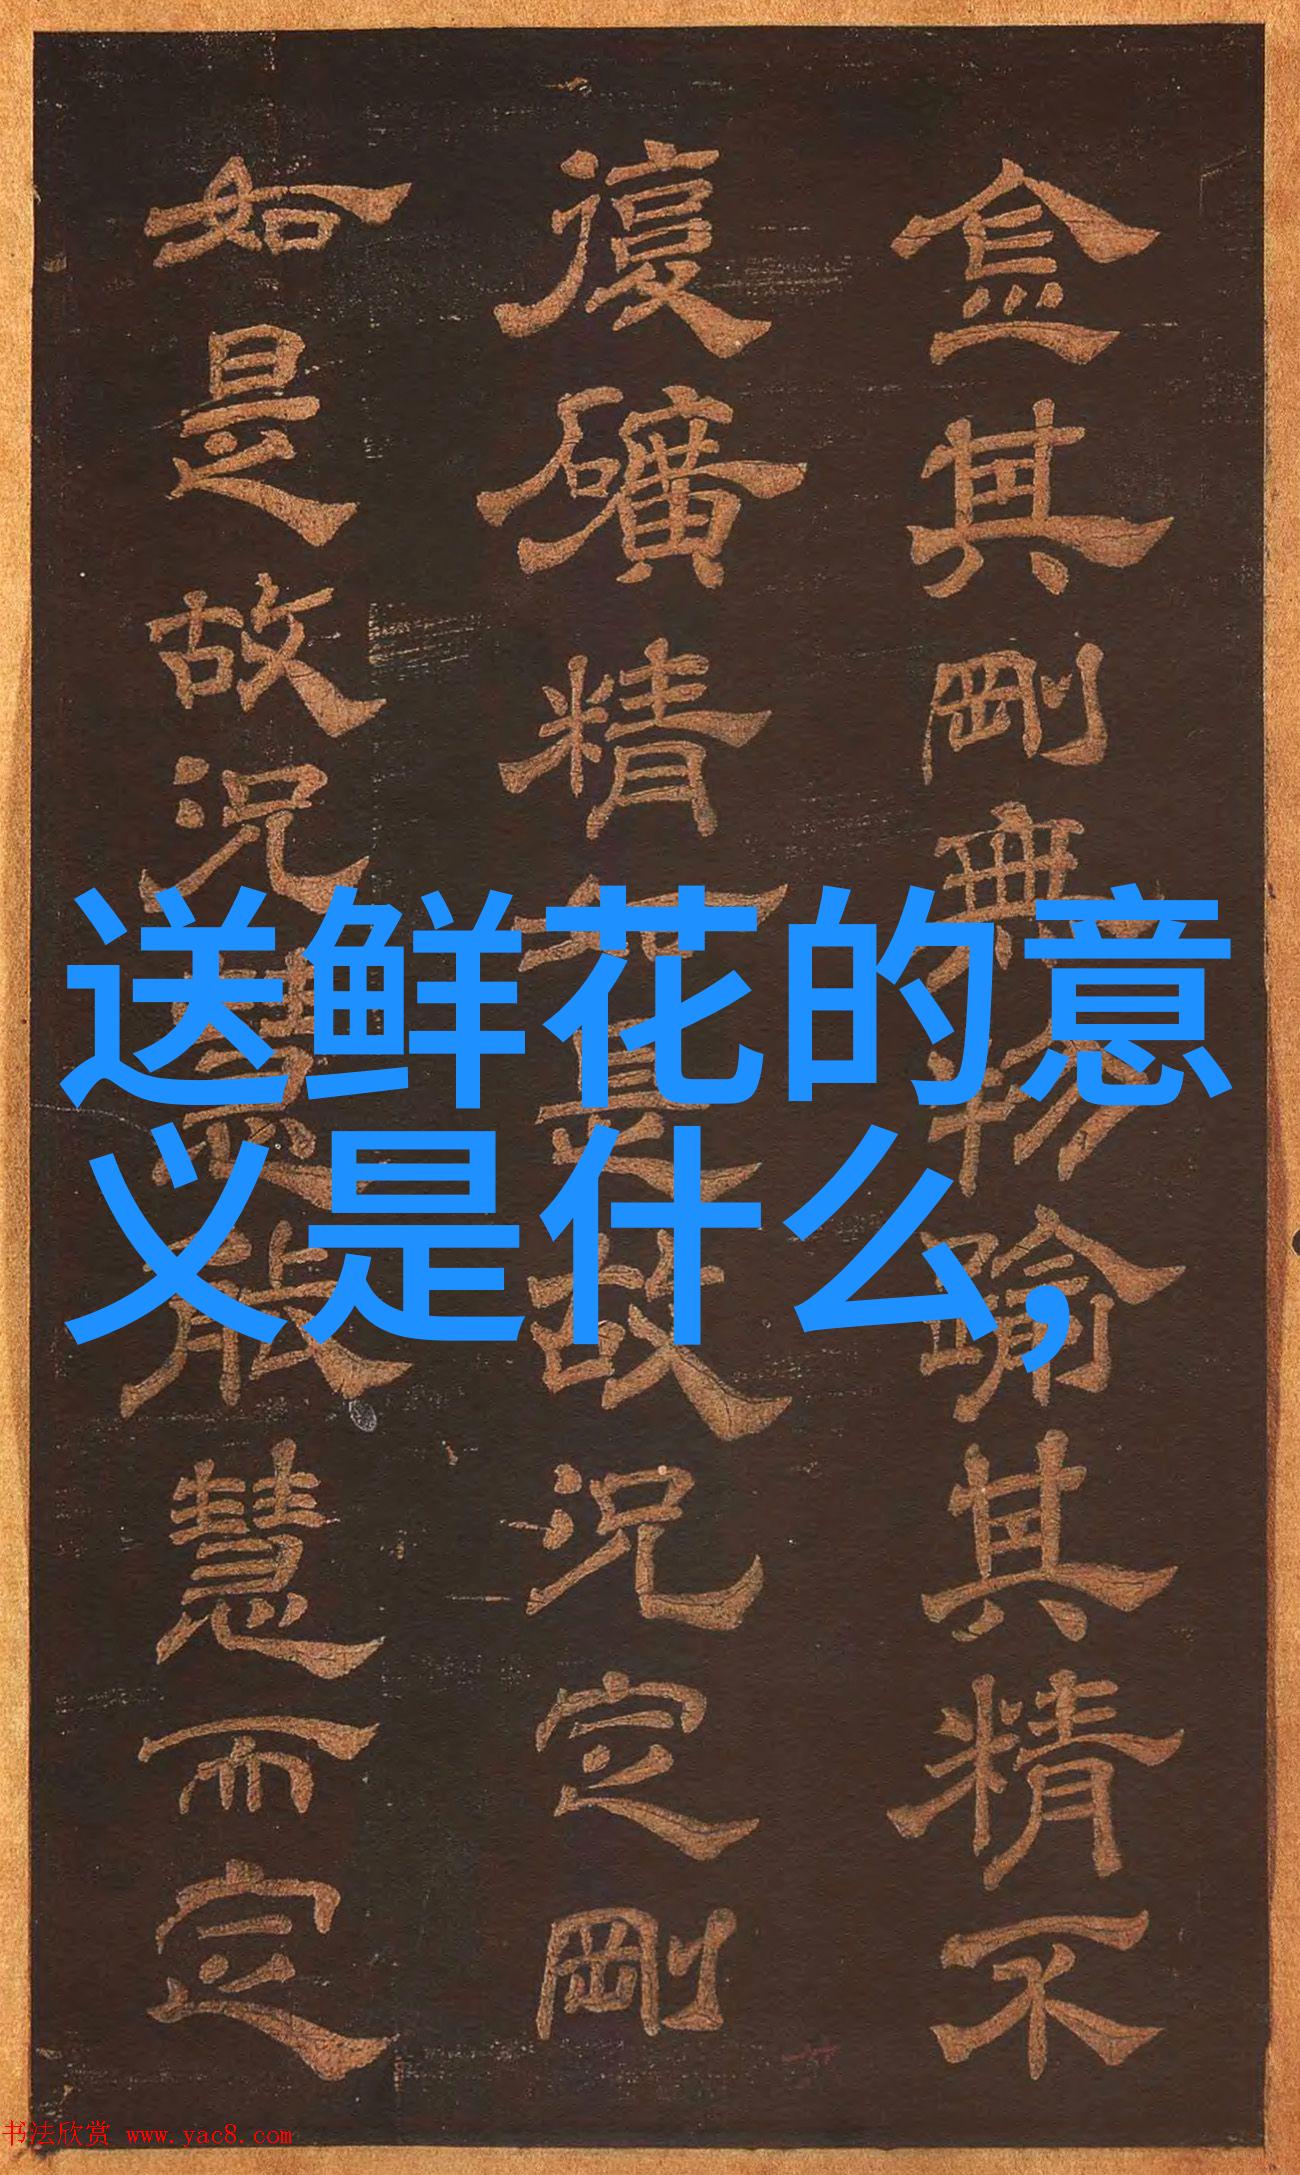 金其剛無物踰其精不
復礦精如真故況定剛
如是故況慧能慧而定
送鲜花的意
义是什么,
书法欣赏 www.yac8.com